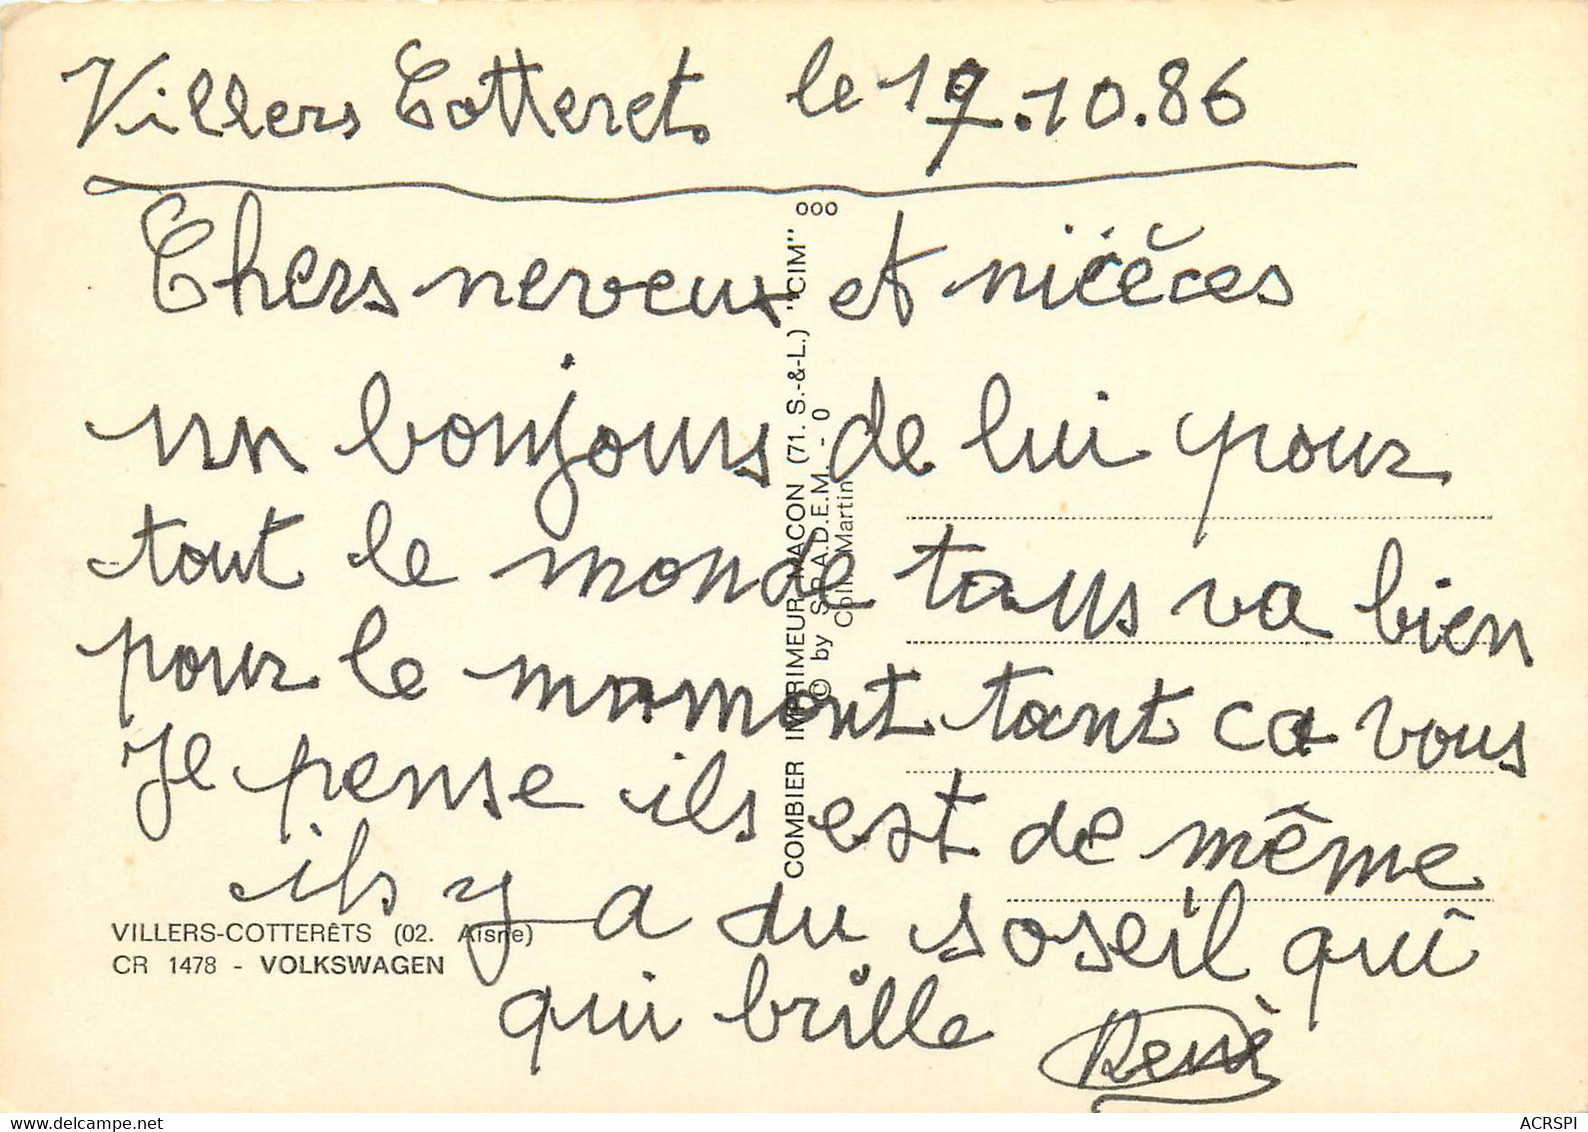 Villers Cotteret. le 17.10.86
Chers neveux et nièces
un bonjours de lui pour
tout le monde tous va bien
pour le momont tant ca vous
Je pense ils est de même
ils y a du soseil qui
qui brille René
ooo
COMBIER IMPRIMEUR MACON (71. S.-&-L.) "CIM"
© by S.P.A.D.E.M. - 0
Coll. Martin
VILLERS-COTTERÊTS (02. Aisne)
CR 1478 - VOLKSWAGEN
ACRSPI